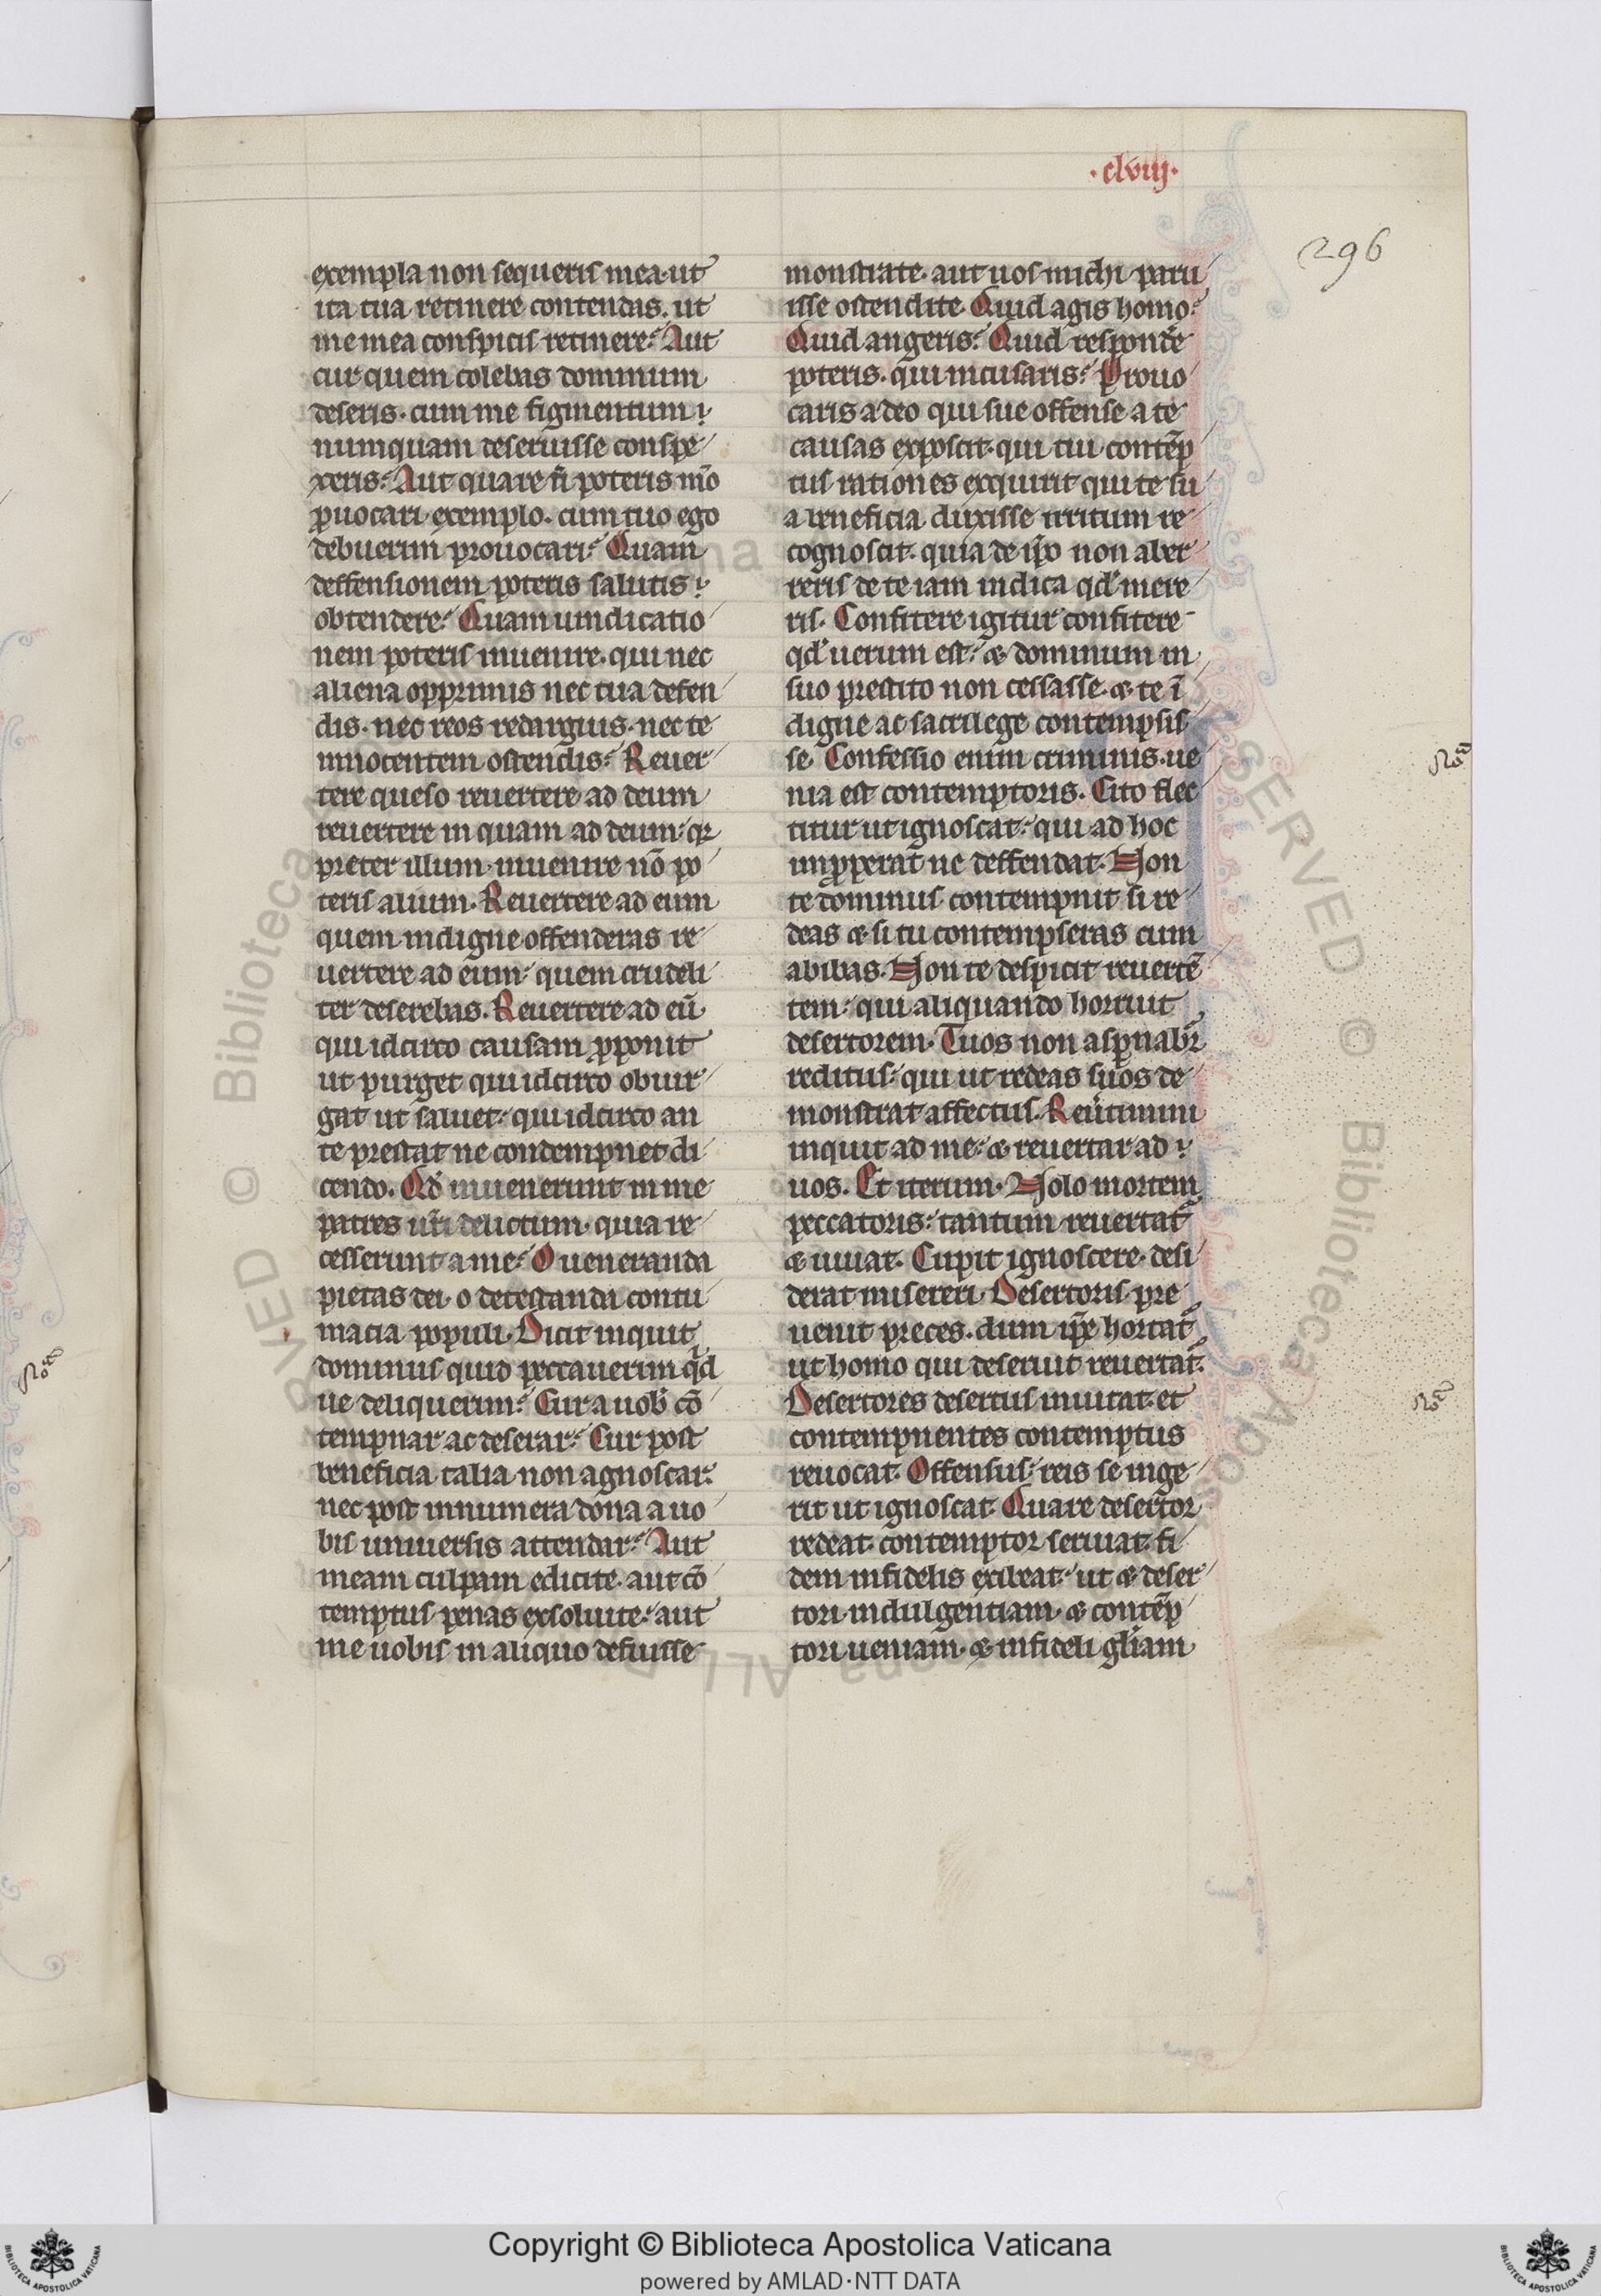 .clviij.
296
exempla non sequeris mea. ut
ita tua retinere contendas. ut
me mea conspicis retinere: Aut
cur quem colebas dominum
deseris. cum me figmentum
numquam deseruisse conspe
xeris: Aut quare n̄ poteris m̄o
ꝓuocari exemplo. cum tuo ego
debuerim prouocari: Quam
deffensionem poteris salutis
obtendere: Quam uindicatio
nem poteris inuenire. qui nec
aliena opprimis nec tua defen
dis. nec reos redarguis. nec te
innocentem ostendis: Reuer
tere queso reuertere ad deum
reuertere inquam ad deum: qr
preter illum inuenire nō po
teris alium. Reuertere ad eum
quem indigne offenderas re
uertere ad eum: quem crudeli
ter deserebas. Reuertere ad eū
qui idcirco causam ꝓponit
ut purget qui idcirco obiur
gat ut saluet: qui idcirco an
te prestat ne condempnet di
cendo. Qd̄ inuenerunt in me
patres ūri delictum. quia re
cesserunt a me: O ueneranda
pietas dei. o detestanda contu
macia populi. Dicit inquit
dominus quid peccauerim qd
ue deliquerim: Cur a uob̄ cō
tempnar ac deserar: Cur post
beneficia talia non agnoscar:
nec post innumera dona a uo
bis uniuersis attendar: Aut
meam culpam edicite. aut cō
temptus penas exsoluite: aut
me uobis in aliquo defuisse
monstrate. aut uos michi paru
isse ostendite. Quid agis homo:
Quid angeris: Quid respondē
poteris. qui incusaris: Prouo
caris a deo qui sue offense a te
causas exposcit. qui tui contēp
tus rationes exquirit qui te su
a beneficia duxisse irritum re
cognoscit. quia de ip̄o non aber
reris de te iam indica qd̄ mere
ris. Confitere igitur confitere
qd̄ uerum est: & dominum in
suo prestito non cessasse. & te ī
digne ac sacrilege contempsis
se. Confessio enim criminis. ue
nia est contemptoris. Cito flec
titur ut ignoscat: qui ad hoc
imꝓperat ne deffendat. Non
te dominus contempnit si re
deas & si tu contempseras cum
abibas. Non te despicit reuertē
tem: qui aliquando horruit
desertorem. Tuos non aspnabr̄
reditus: qui ut redeas suos de
monstrat affectus. Reūtimini
inquit ad me: & reuertar ad
uos. Et iterum. Nolo mortem
peccatoris: tantum reuertat̄
& uiuat. Cupit ignoscere. desi
derat misereri. Desertoris pre
uenit preces. dum ip̄e hortat̄
ut homo qui deseruit reuertat̄.
Desertores desertus inuitat. et
contempnentes contemptus
reuocat. Offensus: reis se inge
rit ut ignoscat. Quare desertor
redeat. contemptor seruiat. fi
dem infidelis exibeat: ut & deser
tori indulgentiam. & contēp
tori ueniam. & infideli gl̄iam
Copyright © Biblioteca Apostolica Vaticana
powered by AMLAD·NTT DATA